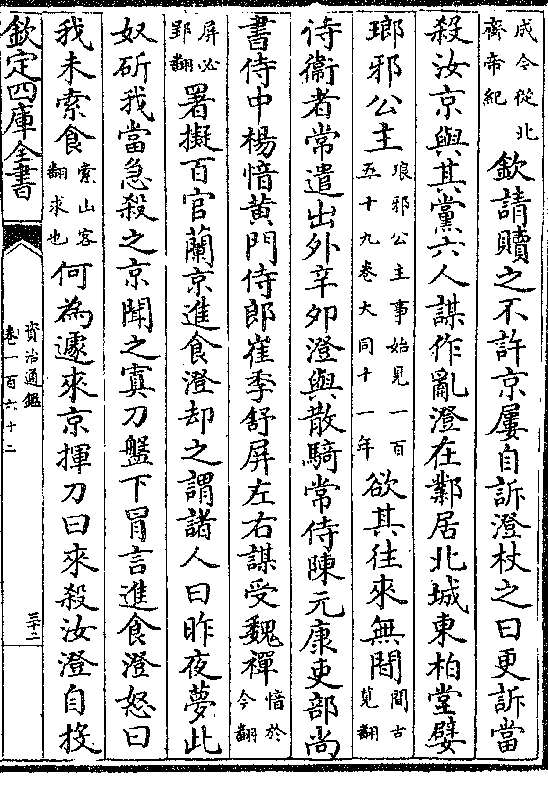 成今從北齊帝紀欽請贖之不許京屢自訴澄杖之曰更訴當
殺汝京與其黨六人謀作亂澄在鄴居北城東柏堂嬖
瑯邪公主琅邪公主事始見一百五十九卷大同十一年欲其往來無閒閒古莧翻
侍衞者常遣出外辛卯澄與散騎常侍陳元康吏部尚
書侍中楊愔黃門侍郎崔季舒屏左右謀受魏禪愔於今翻
屏必郢翻署擬百官蘭京進食澄却之謂諸人曰昨夜夢此
奴斫我當急殺之京聞之寘刀盤下冒言進食澄怒曰
我未索食索山客翻求也何為遽來京揮刀曰來殺汝澄自投
欽定四庫全書
資治通鑑
卷一百六十二
三十二